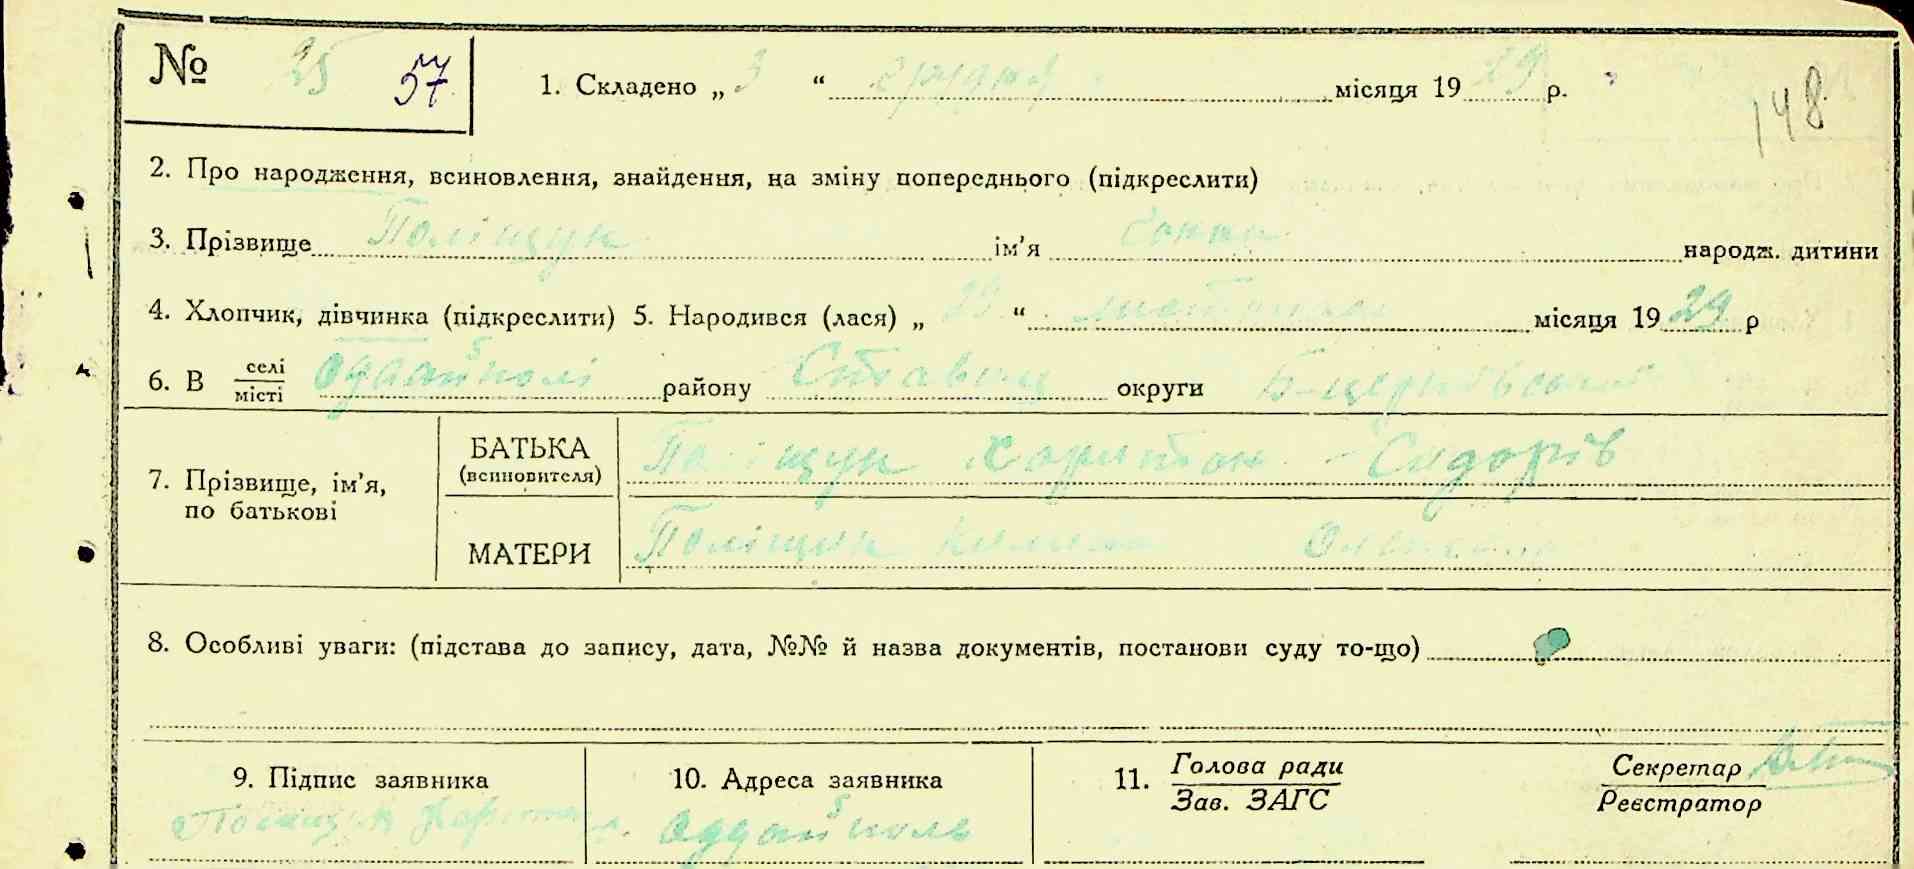 № 25 57 1. Складено „ 3 “ грудня місяця 19 29 р. 148
2. Про народження, всиновлення, знайдення, на зміну попереднього (підкреслити)
3. Прізвище Поліщук ім'я народж. дитини
4. Хлопчик, дівчинка (підкреслити) 5. Народився (лася) „ 29 “ листопада місяця 19 29 р
6. В селі місті району Ставищ округи Б-церківської
7. Прізвище, ім'я, по батькові
БАТЬКА (всиновителя) Поліщук Харитон Сидорів
МАТЕРИ Поліщук
8. Особливі уваги: (підстава до запису, дата, №№ й назва документів, постанови суду то-що)
9. Підпис заявника 10. Адреса заявника 11. Голова ради Зав. ЗАГС Секретар Реєстратор